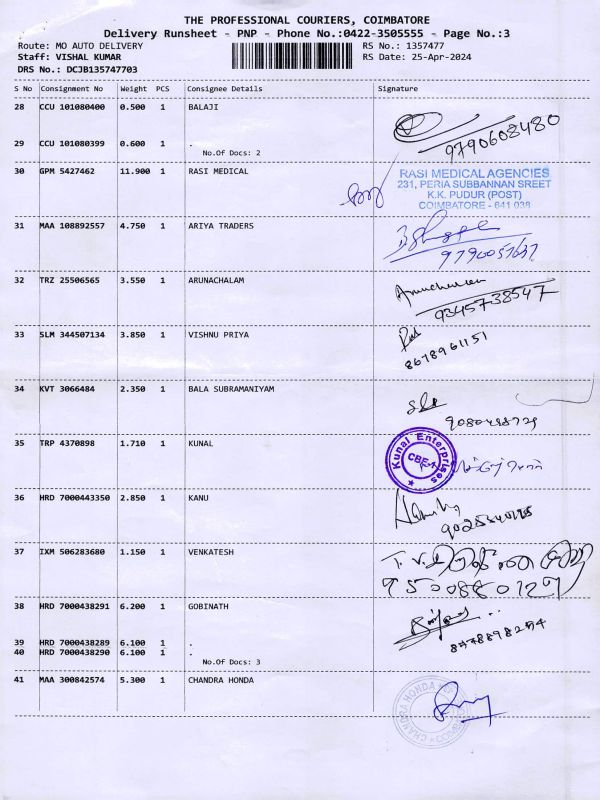 THE PROFESSIONAL COURIERS, COIMBATORE
Delivery Runsheet - PNP - Phone No.:0422-3505555 - Page No.:3
Route: MO AUTO DELIVERY RS No.: 1357477
Staff: VISHAL KUMAR RS Date: 25-Apr-2024
DRS No.: DCJB135747703
S No Consignment No Weight PCS Consignee Details Signature
28 CCU 101080400 0.500 1 BALAJI
9790608480
29 CCU 101080399 0.600 1 .
No.Of Docs: 2
30 GPM 5427462 11.900 1 RASI MEDICAL
RASI MEDICAL AGENCIES
231, PERIA SUBBANNAN SREET
K.K. PUDUR (POST)
COIMBATORE - 641 038
31 MAA 108892557 4.750 1 ARIYA TRADERS
32 TRZ 25506565 3.550 1 ARUNACHALAM
Arunachalam
9345738547
33 SLM 344507134 3.850 1 VISHNU PRIYA
8678961151
34 KVT 3066484 2.350 1 BALA SUBRAMANIYAM
35 TRP 4370898 1.710 1 KUNAL
Kunal Enterprises
CBE-1
36 HRD 7000443350 2.850 1 KANU
37 IXM 506283680 1.150 1 VENKATESH
9500880127
38 HRD 7000438291 6.200 1 GOBINATH
39 HRD 7000438289 6.100 1 .
40 HRD 7000438290 6.100 1 .
No.Of Docs: 3
41 MAA 300842574 5.300 1 CHANDRA HONDA
CHANDRA HONDA